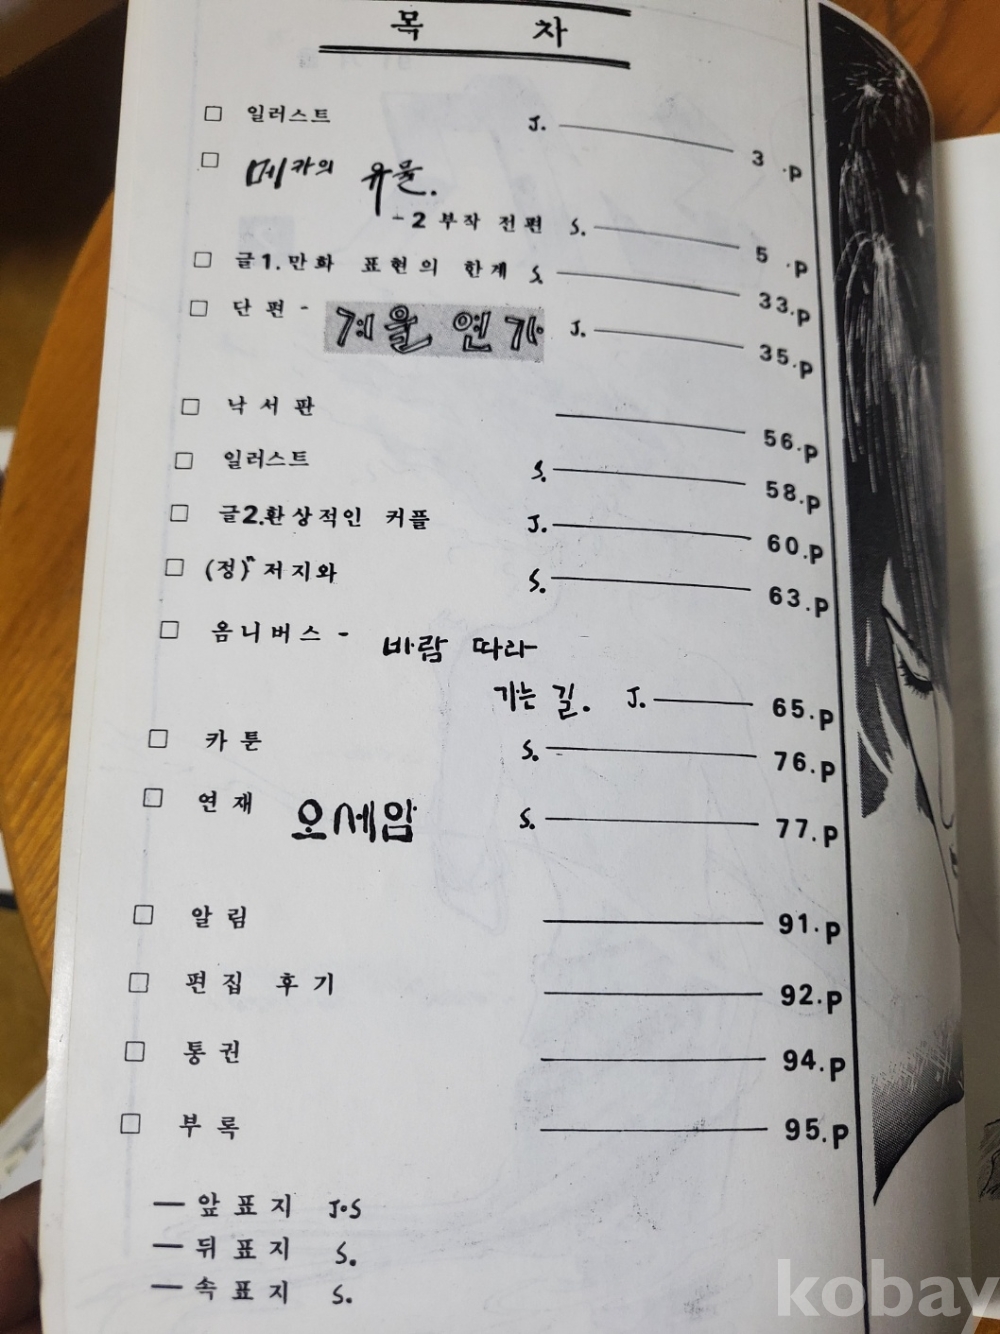 목 차
□ 일러스트 J. 3 .P
□ 메카의 유물.
-2 부작 전편 S. 5 .P
□ 글1.만화 표현의 한계 S. 33.P
□ 단편 - 겨울 연가 J. 35.P
□ 낙서판 56.P
□ 일러스트 S. 58.P
□ 글2.환상적인 커플 J. 60.P
□ (정)" 저지와 S. 63.P
□ 옴니버스 - 바람 따라
가는 길. J. 65.P
□ 카툰 S. 76.P
□ 연재 오세암 S. 77.P
□ 알림 91.P
□ 편집 후기 92.P
□ 통권 94.P
□ 부록 95.P
— 앞표지 J·S
— 뒤표지 S.
— 속표지 S.
kobay